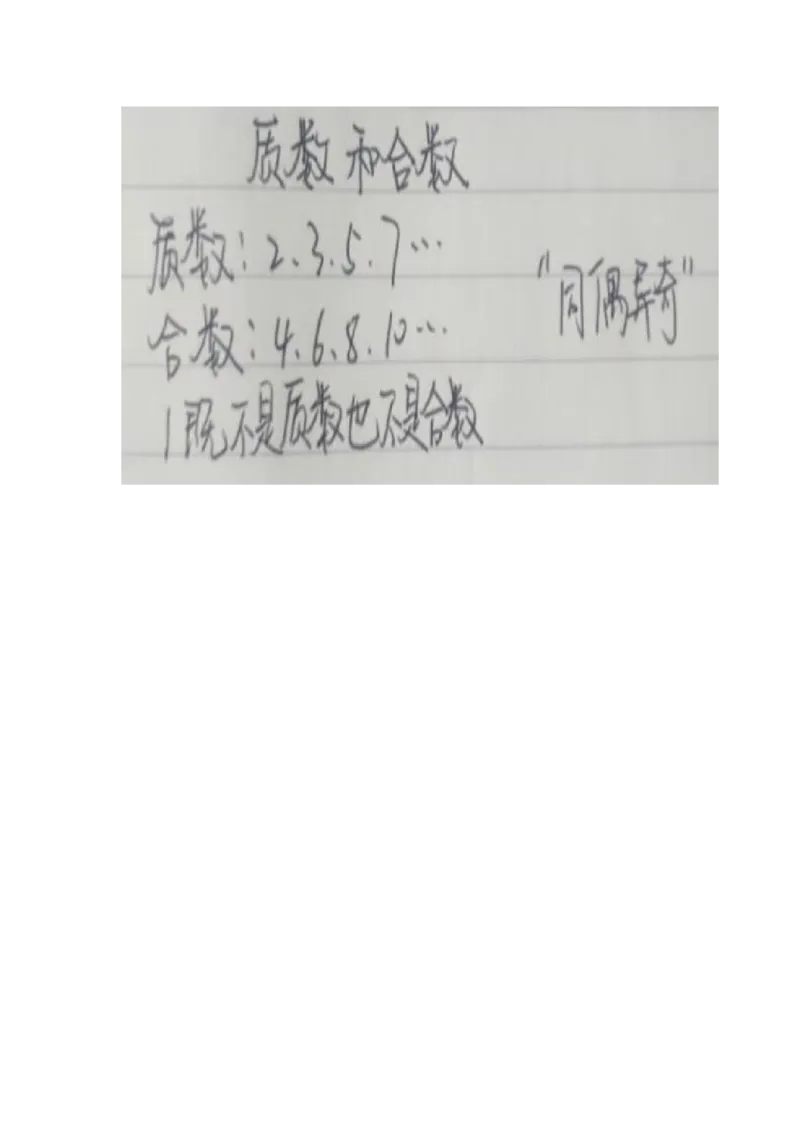 质数和合数
质数：2、3、5、7…
"同偶异奇"
合数：4、6、8、10…
1既不是质数也不是合数